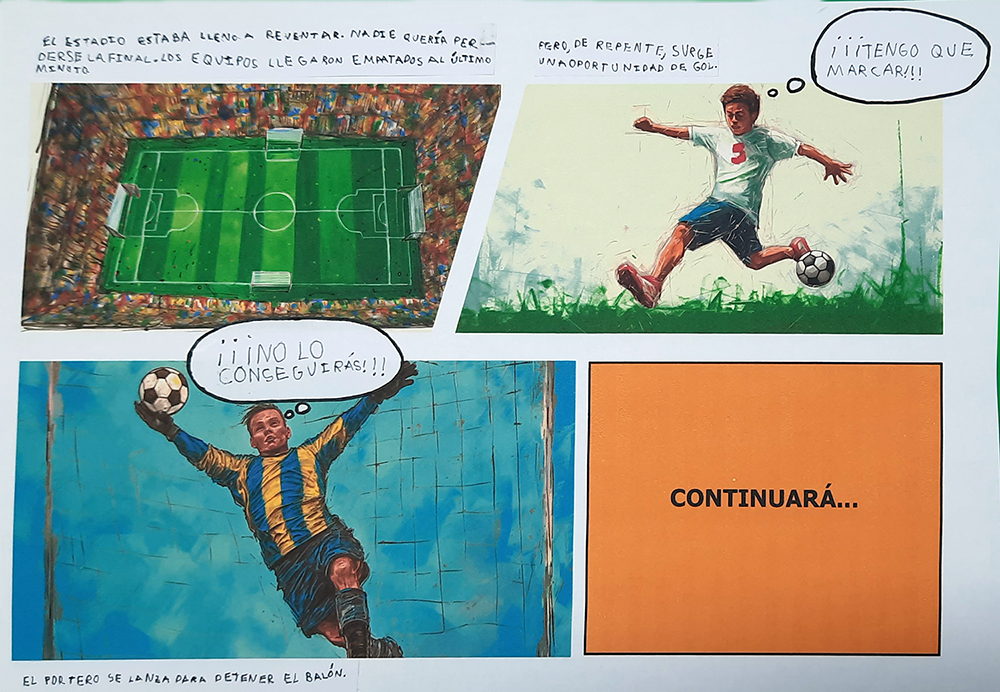 EL ESTADIO ESTABA LLENO A REVENTAR. NADIE QUERÍA PER-
DERSE LA FINAL. LOS EQUIPOS LLEGARON EMPATADOS AL ÚLTIMO
MINUTO
PERO, DE REPENTE, SURGE
UNA OPORTUNIDAD DE GOL.
¡¡¡TENGO QUE
MARCAR!!!
5
¡¡¡NO LO
CONSEGUIRÁS!!!
CONTINUARÁ...
EL PORTERO SE LANZA PARA DETENER EL BALÓN.